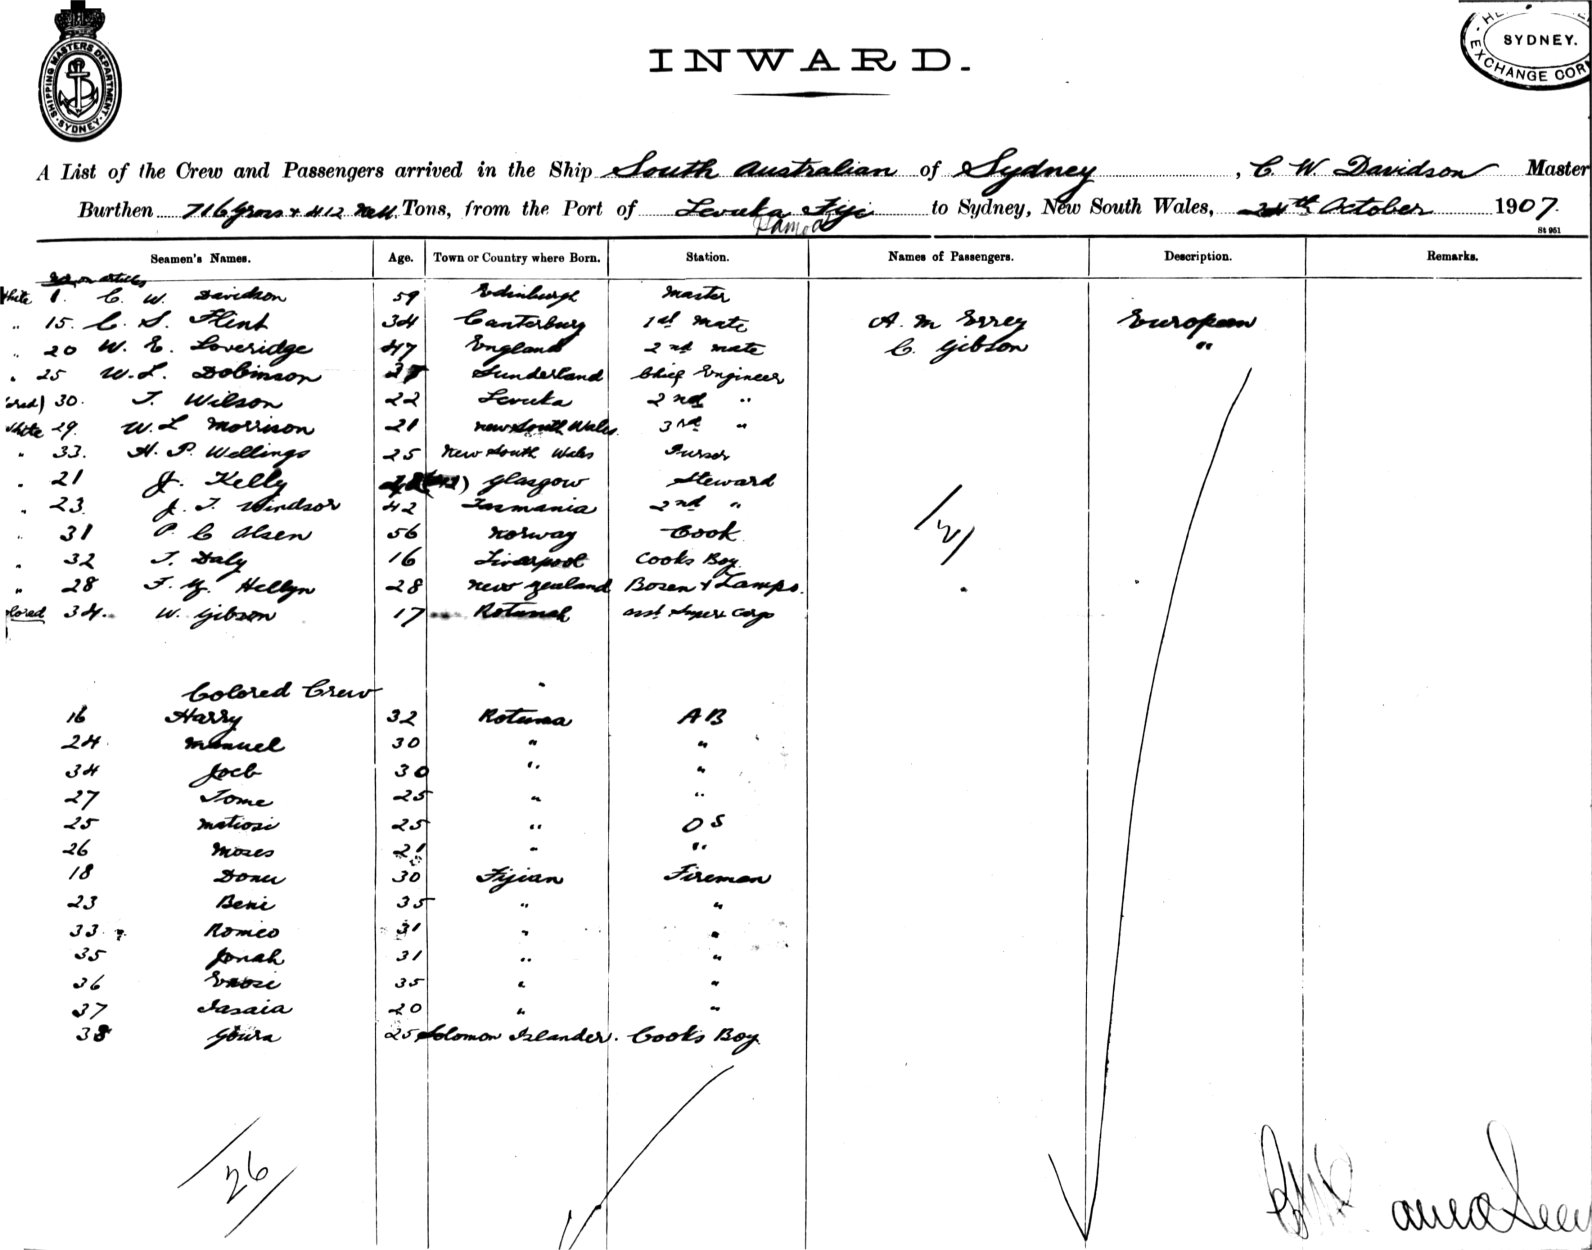 SHIPPING MASTERS DEPARTMENT
SYDNEY
SYDNEY.
EXCHANGE COR
INWARD.
A List of the Crew and Passengers arrived in the Ship South Australian of Sydney, C. W. Davidson Master
Burthen 716 Gross & 412 Nett Tons, from the Port of Levuka Fiji to Sydney, New South Wales, 24th October 1907.
Samoa
St 951
Seamen's Names. Age. Town or Country where Born. Station. Names of Passengers. Description. Remarks.
No. on articles
White 1. C. W. Davidson 59 Edinburgh Master
" 15. C. S. Flint 34 Canterbury 1st Mate A. M Errey European
" 20 W. E. Loveridge 47 England 2nd Mate C. Gibson "
" 25 W. L. Dobinson 37 Sunderland Chief Engineer
30. T. Wilson 22 Levuka 2nd "
White 29. W. L Morrison 21 New South Wales. 3rd "
" 33. H. P. Wellings 25 New South Wales Purser
" 21 J. Kelly Glasgow Steward
" 23. J. T. Windsor 42 Tasmania 2nd "
" 31 P. C Olsen 56 Norway Cook
" 32 T. Daly 16 Liverpool Cooks Boy.
" 28 F. Y. Hellyn 28 New Zealand Bosen & Lamps.
olored 34. W. Gibson 17 Rotumah asst Super Cargo
2
Colored Crew
16 Harry 32 Rotuma A B
24 Manuel 30 " "
34 Joeb 30 " "
27 Tome 25 " "
25 Matiosi 25 " O S
26 Moses 21 " "
18 Donu 30 Fijian Fireman
23 Beni 35 " "
33 Romeo 31 " "
35 Jonah 31 " "
36 35 " "
37 Isaia 20 " "
38 Goura 25 Solomon Islander. Cooks Boy.
26